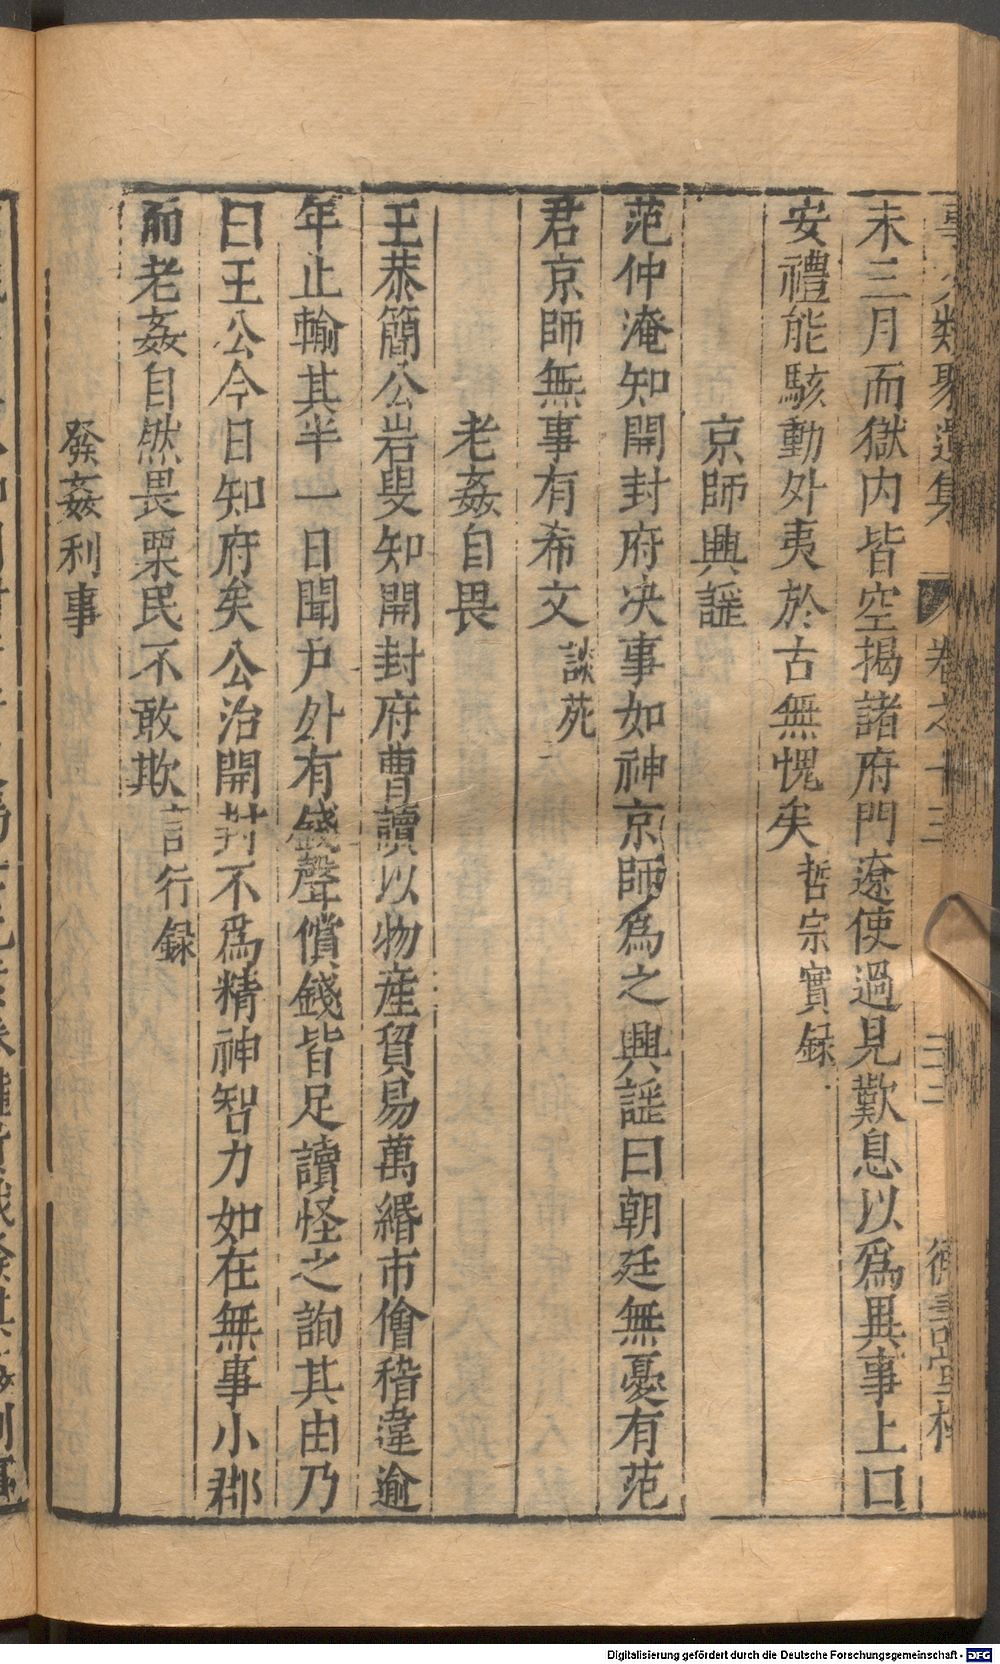 事文類聚遺集 卷之十三 三二 德壽堂梓
未三月而獄内皆空揭諸府門遼使過見歎息以爲異事上曰
安禮能駭動外夷於古無愧矣 哲宗實録
京師興謡
范仲淹知開封府决事如神京師爲之興謡曰朝廷無憂有范
君京師無事有希文 談苑
老姦自畏
王恭簡公岩叟知開封府曹讀以物産貿易萬緡市儈稽違逾
年止輸其半一日聞户外有錢聲償錢皆足讀怪之詢其由乃
曰王公今日知府矣公治開封不爲精神智力如在無事小郡
而老姦自然畏栗民不敢欺 言行録
發姦利事
Digitalisierung gefördert durch die Deutsche Forschungsgemeinschaft - DFG